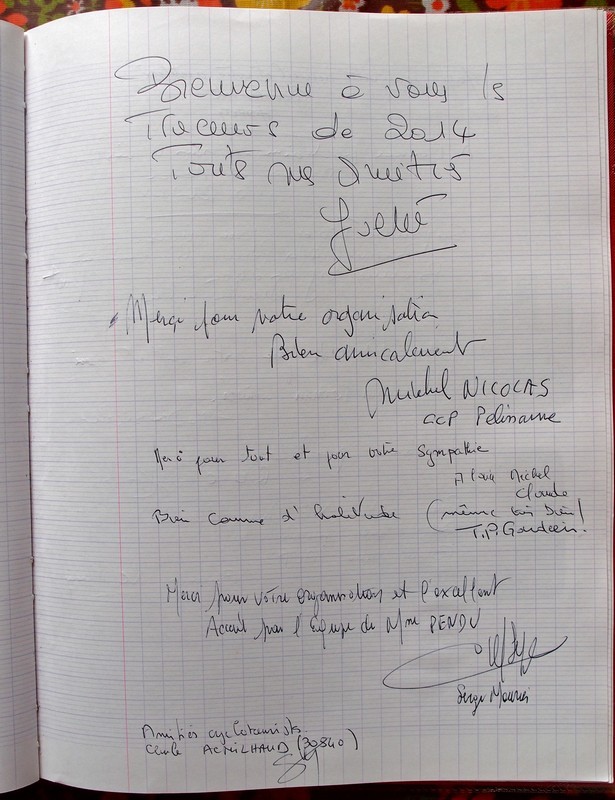 Bienvenue à vous les
Traceurs de 2014
Toutes nos Amitiés
Merci pour votre organisation
Bien amicalement
Michel NICOLAS
CCP Pelissanne
Merci pour tout et pour votre sympathie
Michel
Claude
Bien comme d'habitude (même très bien!
Merci pour votre organisation et l'excellent
Accueil par l'équipe de Mme PENDU
Serge
Amitiés cyclotouristes
MILHAUD (30840)